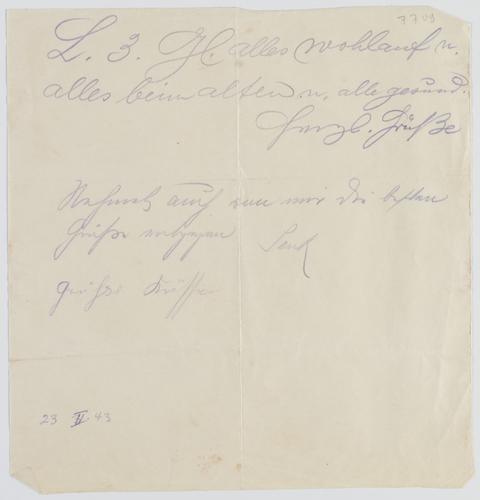 7709
L. 3. H. alles wohlauf u.
alles beim alten u. alle gesund.
Herzl. Grüße
Nehmet auch von mir die besten
Grüße entgegen
Grüße Küsse
23 II 43